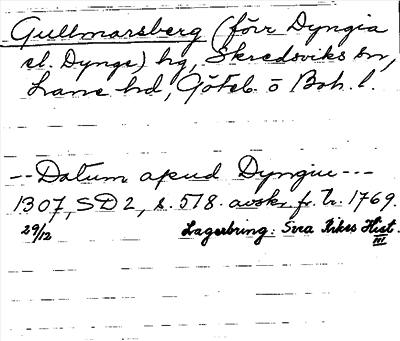 Gullmarsberg (förr Dyngia
el. Dynge) hg, Skredsviks sn,
Lane hd, Göteb. o Boh. l.
--Datum apud Dyngiu---
1307, SD 2, s. 518. avskr. fr. tr. 1769.
29/12 Lagerbring: Svea Rikes Hist.
III